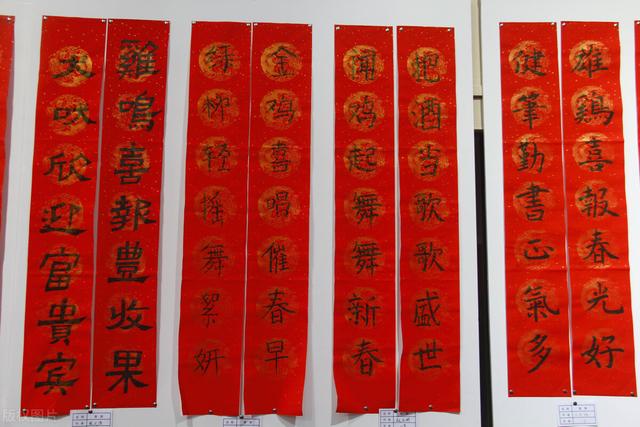 雄鷄喜報春光好
健筆勤書正氣多
把酒当歌歌盛世
闻鸡起舞舞新春
金鸡喜唱催春早
绿柳轻摇舞絮妍
雞鳴喜報豐收果
犬吠欣迎富貴賓